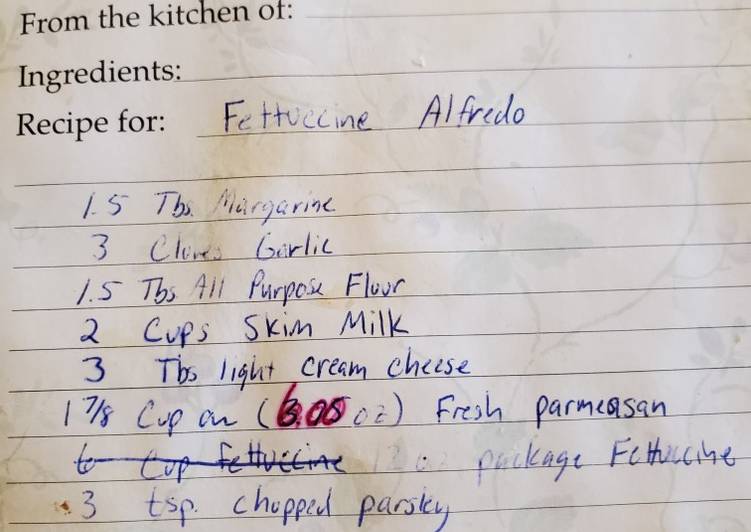 From the kitchen of:
Ingredients:
Recipe for: Fettuccine Alfredo
1.5 Tbs. Margarine
3 Cloves Garlic
1.5 Tbs All Purpose Flour
2 Cups Skim Milk
3 Tbs light cream cheese
1 7/8 Cup or (6.05 oz) Fresh parmeasan
Cup fettuccine package Fettuccine
3 tsp. chopped parsley